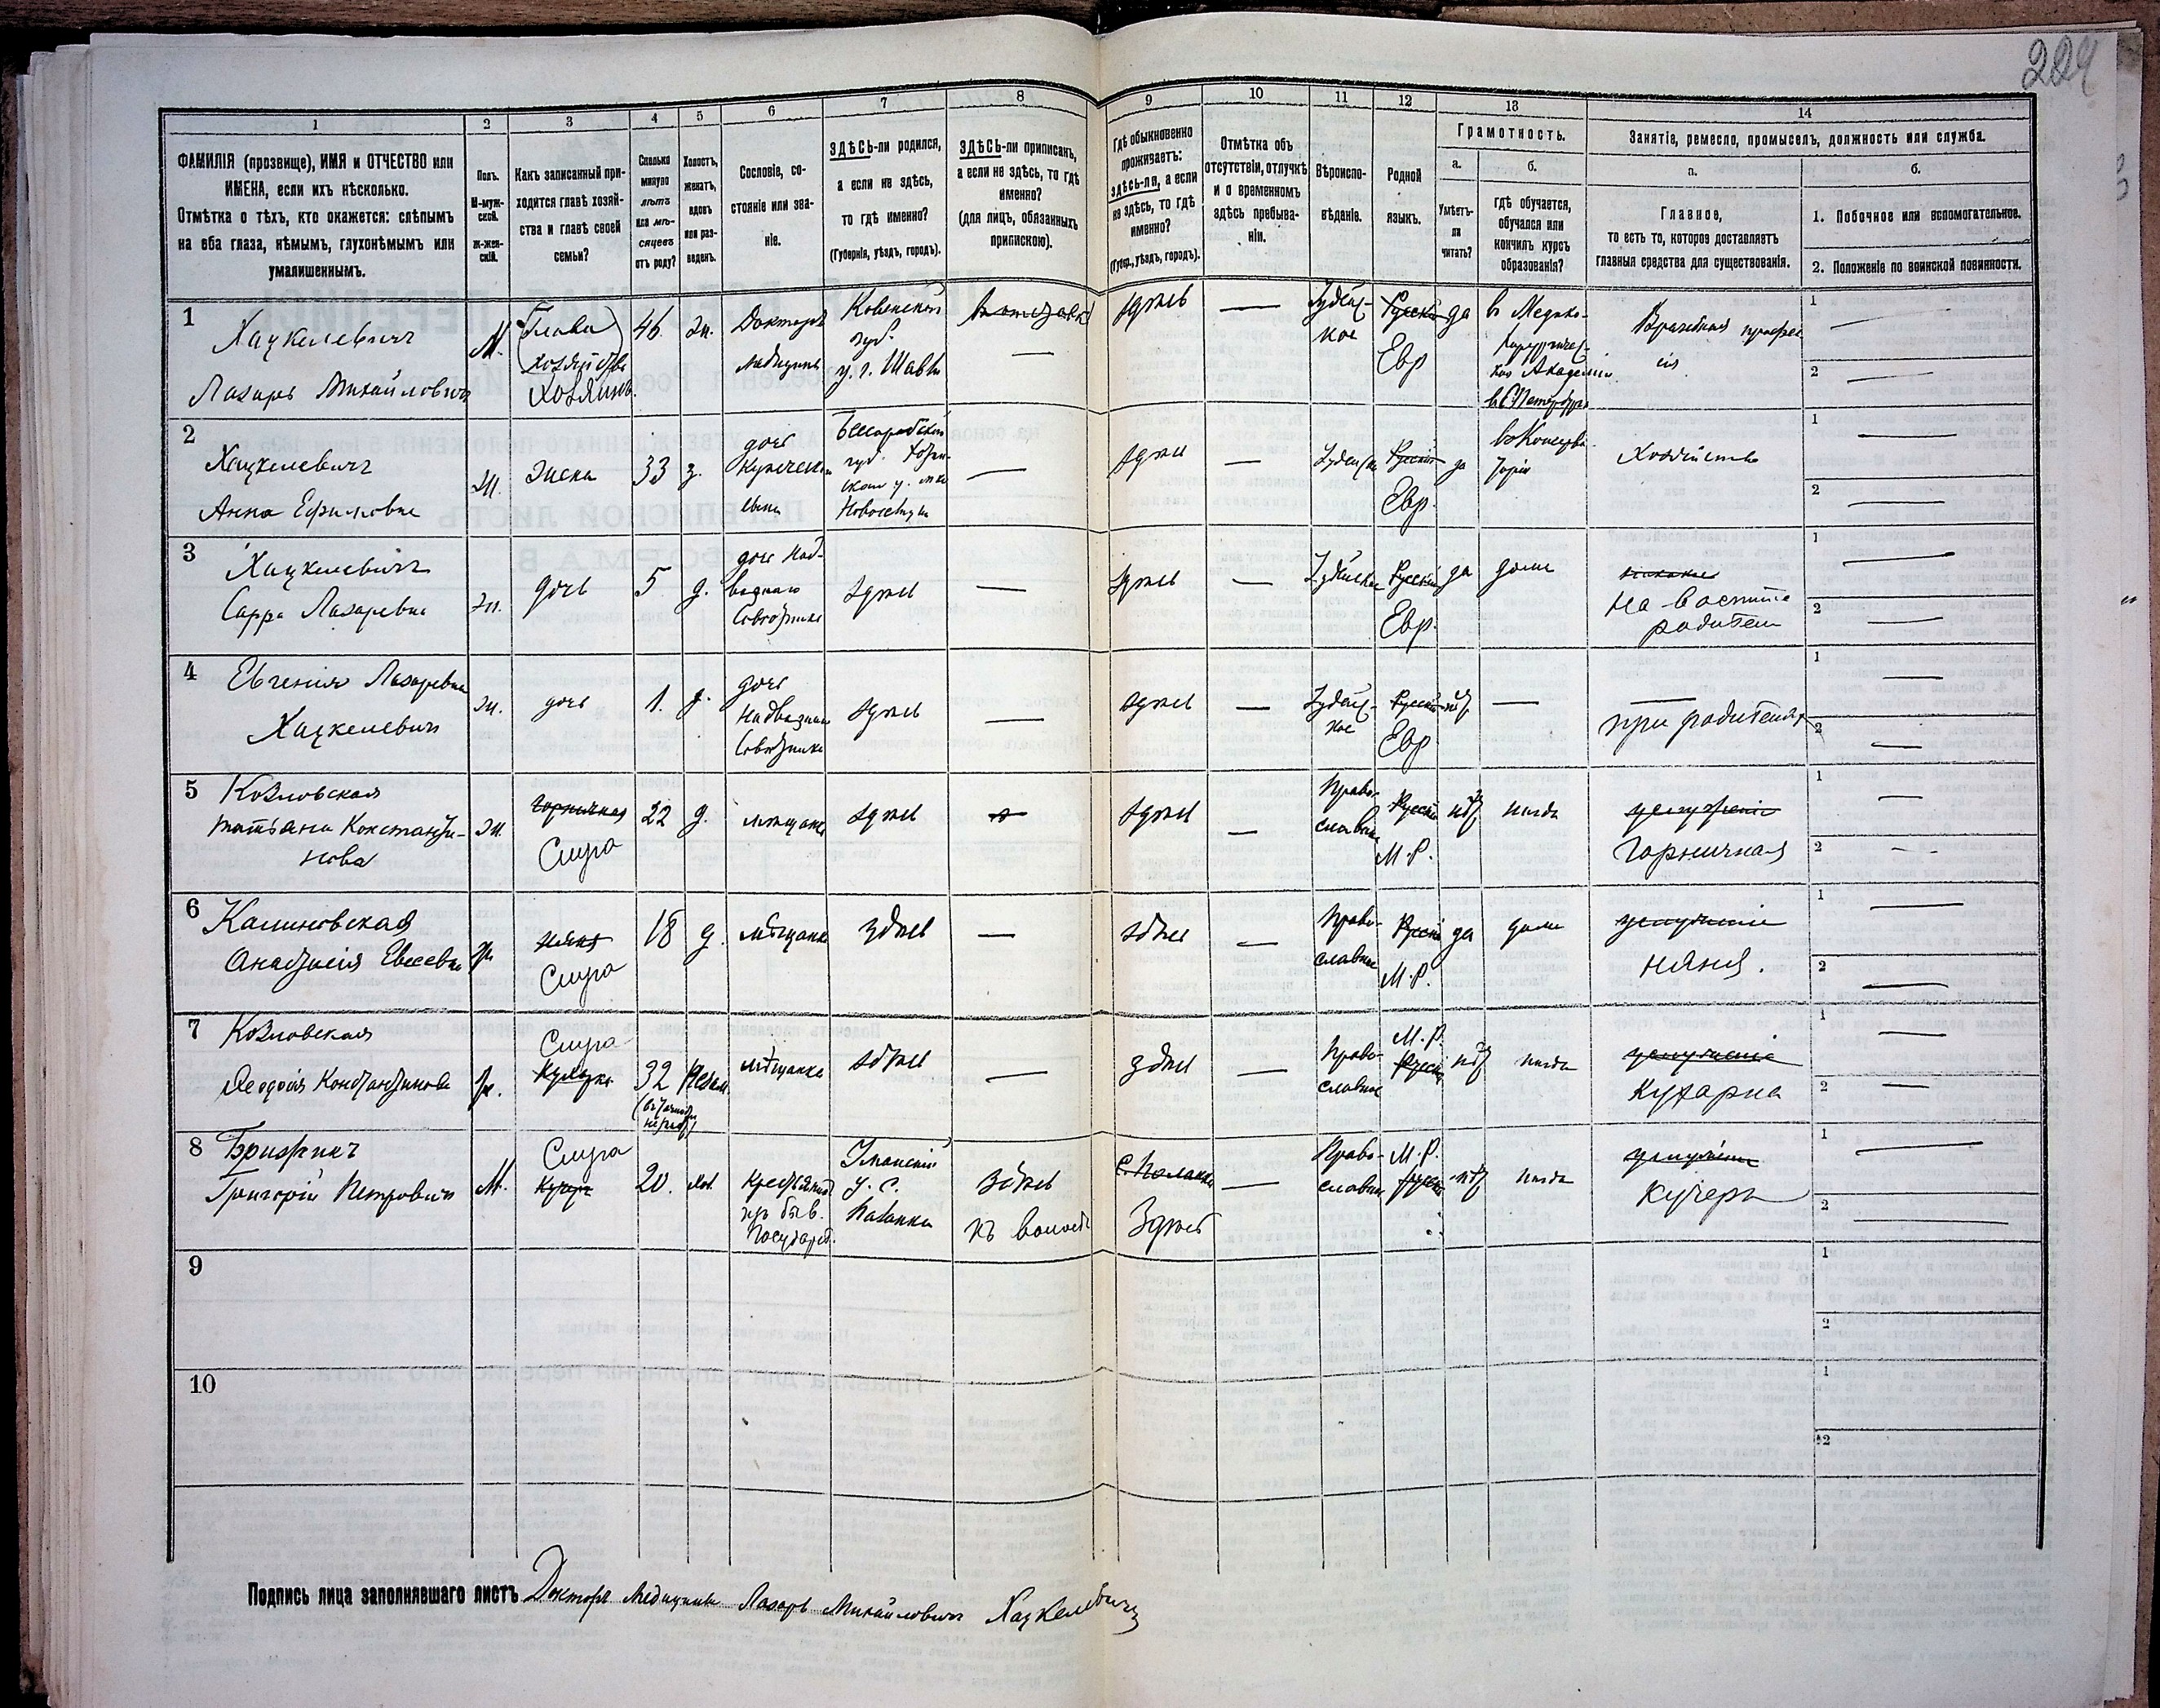 224
1
2
3
4
5
6
7
8
9
10
11
12
13
14
ФАМИЛІЯ (прозвище), ИМЯ и ОТЧЕСТВО или
ИМЕНА, если ихъ нѣсколько.
Отмѣтка о тѣхъ, кто окажется: слѣпымъ
на оба глаза, нѣмымъ, глухонѣмымъ или
умалишеннымъ.
Полъ.
М-муж-
ской.
Ж-жен-
скій.
Какъ записанный при-
ходится главѣ хозяй-
ства и главѣ своей
семьи?
Сколько
минуло
лѣтъ
или мѣ-
сяцевъ
отъ роду?
Холостъ,
женатъ,
вдовъ
или раз-
веденъ.
Сословіе, со-
стояніе или зва-
ніе.
ЗДѢСЬ-ли родился,
а если не здѣсь,
то гдѣ именно?
(Губернія, уѣздъ, городъ).
ЗДѢСЬ-ли приписанъ,
а если не здѣсь, то гдѣ
именно?
(для лицъ, обязанныхъ
припискою).
Гдѣ обыкновенно
проживаетъ:
здѣсь-ли, а если
не здѣсь, то гдѣ
именно?
(Губер., уѣздъ, городъ).
Отмѣтка объ
отсутствіи, отлучкѣ
и о временномъ
здѣсь пребыва-
ніи.
Вѣроиспо-
вѣданіе.
Родной
языкъ.
Грамотность.
а.
Умѣетъ-
ли
читать?
б.
гдѣ обучается,
обучался или
кончилъ курсъ
образованія?
Занятіе, ремесло, промыселъ, должность или служба.
а.
Главное,
то есть то, которое доставляетъ
главныя средства для существованія.
б.
1. Побочное или вспомогательное.
2. Положеніе по воинской повинности.
1
Хацкелевичъ
Лазарь Михайловичъ
М.
(Глава
хозяйства)
Хозяинъ.
46
Ж.
Докторъ
медицины
Ковенской
губ.
у. г. Шавли
здѣсь
Іудейс-
кое
Русскій
Евр
да
в Медико-
хирургичес-
кой Академіи
въ СПетербургѣ
Врачебная профес
сія
1
2
2
Хацкелевичъ
Анна Ефимовна
Ж.
жена
33
з.
дочь
Купческая
Бессарабской
губ. Хотин-
скаго у. м-ка
Новоселицы
здѣсь
Русскій
Евр.
да
въ Консерва-
торіи
Хозяйство
1
2
3
Хацкелевичъ
Сарра Лазаревна
Ж.
дочь
5
д.
дочь Над-
ворнаго
Совѣтника
здѣсь
здѣсь
Іудейское
Русскій
Евр.
да
дома
на воспит.
родител
1
2
4
Евгенія Лазаревна
Хацкелевичъ
Ж.
дочь
1.
д.
дочь
Надворнаго
Совѣтника
здѣсь
здѣсь
Іудейс-
кое
Русскій
Евр
нѣт
при родителях
1
2
5
Козловская
Татьяна Константи-
нова
Ж.
горничная
Слуга
22
д.
мѣщанка
здѣсь
здѣсь
Право-
славное
Русскій
М.Р.
нѣт
услуженіе
Горничная
1
2
6
Калиновская
Анастасія Евсеевна
Ж
няня
Слуга
18
д.
мѣщанка
здѣсь
здѣсь
Право-
славное
Русскій
М.Р.
да
дома
услуженіе
няня.
1
2
7
Козловская
Ѳеодосія Константинова
Ж.
Слуга
Кухарка
32
мѣщанка
здѣсь
здѣсь
Право-
славное
М.Р.
Русскій
нѣт
услуженіе
Кухарка
1
2
8
Григорій Петровичъ
М.
Слуга
Кучеръ
20.
хол.
Крестьянинъ
изъ быв.
Государст.
Уманскій
у. с.
здѣсь
къ волости
Здѣсь
Право-
славное
М.Р.
Русскій
нѣт
услуженіе
кучеръ
1
2
9
1
2
10
1
2
Подпись лица заполнявшаго листъ Докторъ Медицины Лазарь Михайловичъ Хацкелевичъ